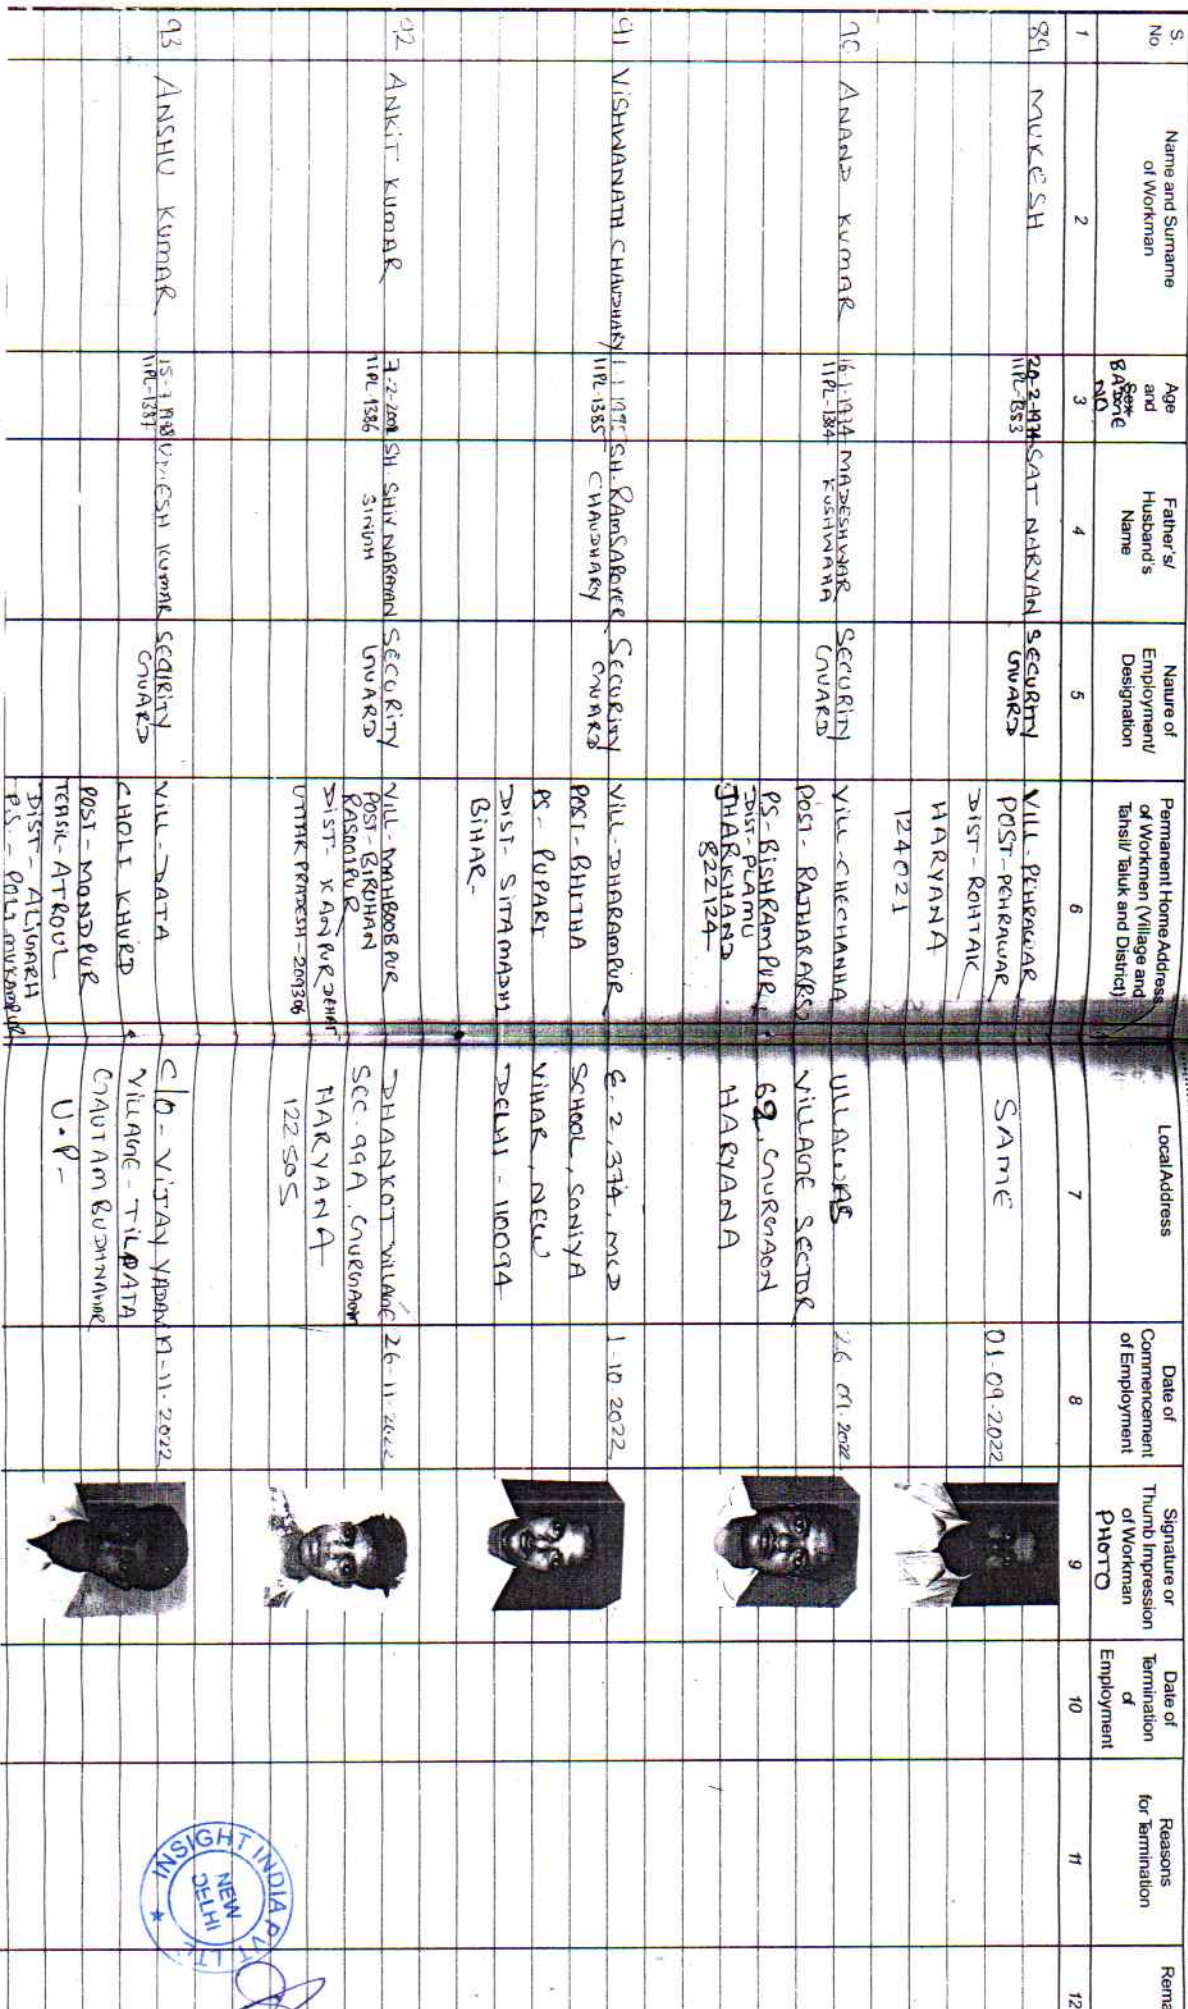 S. No.
Name and Surname of Workman
Age and Sex
BADGE NO
Father's/ Husband's Name
Nature of Employment/ Designation
Permanent Home Address of Workmen (Village and Tahsil/ Taluk and District)
Local Address
Date of Commencement of Employment
Signature or Thumb Impression of Workman
PHOTO
Date of Termination of Employment
Reasons for Termination
Rema
1 2 3 4 5 6 7 8 9 10 11 12
89 MUKESH
20-2-1974
IIPL-1383
SAT NARYAN
SECURITY
GUARD
VILL-PEHRAWAR
POST-PEHRAWAR
DIST-ROHTAK
HARYANA
124021
SAME
01-09-2022
90 ANAND KUMAR
16-1-1974
IIPL-1384
MADESHWAR
KUSHWAHA
SECURITY
GUARD
VILL-CHECHANHA
POST-RAJHARA(RS)
PS-BISHRAMPUR
DIST-PLAMU
JHARKHAND
822124
ULLAWAS
VILLAGE SECTOR
62, GURGAON
HARYANA
26 09.2022
91 VISHWANATH CHAUDHARY
IIPL-1385
SH. RAMSAROVER
CHAUDHARY
SECURITY
GUARD
VILL-DHARAMPUR
POST-BHITHA
PS-PUPARI
DIST-SITAMADHI
BIHAR-
E-2, 374, MCD
SCHOOL, SONIYA
VIHAR, NEW
DELHI-110094
1-10.2022
92 ANKIT KUMAR
IIPL-1386
SH. SHIV NARAYAN
SINGH
SECURITY
GUARD
VILL-MAHBOOBPUR
POST-BIRUHAN
RASOOLPUR
DIST-KANPUR DEHAT
UTTAR PRADESH-209306
DHANKOT VILLAGE
SEC.99A, GURGAON
HARYANA
122505
26-11-2022
93 ANSHU KUMAR
15-7-1998
IIPL-1387
UMESH KUMAR
SECIRITY
GUARD
VILL-DATA
CHOLI KHURD
POST-MONDPUR
TEHSIL-ATROUL
DIST-ALIGARH
C/O-VIJAY YADAV
VILLAGE-TILPATA
GAUTAM BUDHNAGAR
U.P-
INSIGHT INDIA PVT LTD
NEW DELHI